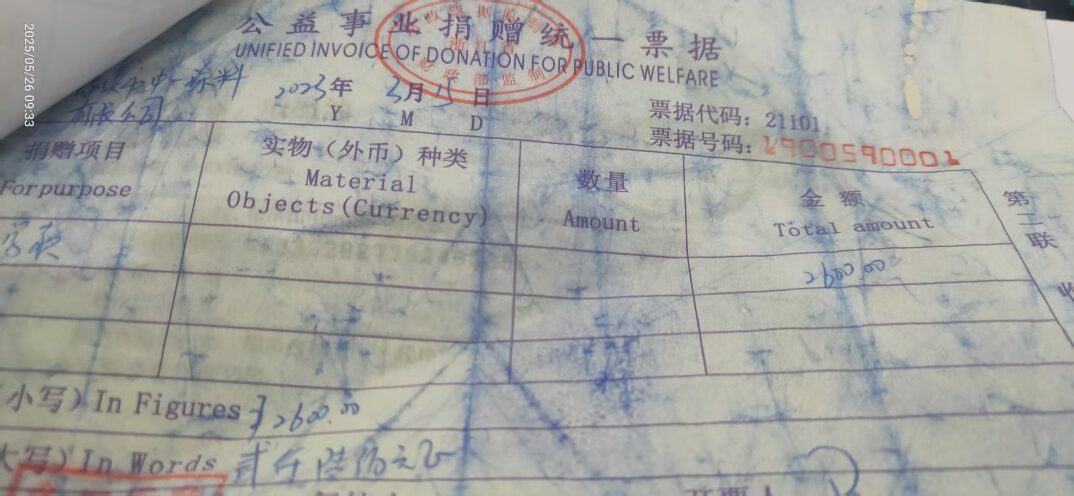 公益事业捐赠统一票据
UNIFIED INVOICE OF DONATION FOR PUBLIC WELFARE
涂料
有限公司
2023年 5月15日
Y M D
票据代码：21101
票据号码：1900590001
捐赠项目
For purpose
实物（外币）种类
Material
Objects(Currency)
数量
Amount
金额
Total amount
第二联
2600.00
小写) In Figures 2600.00
大写) In Words 贰仟陆佰元正
开票人
2025/05/26 09:33